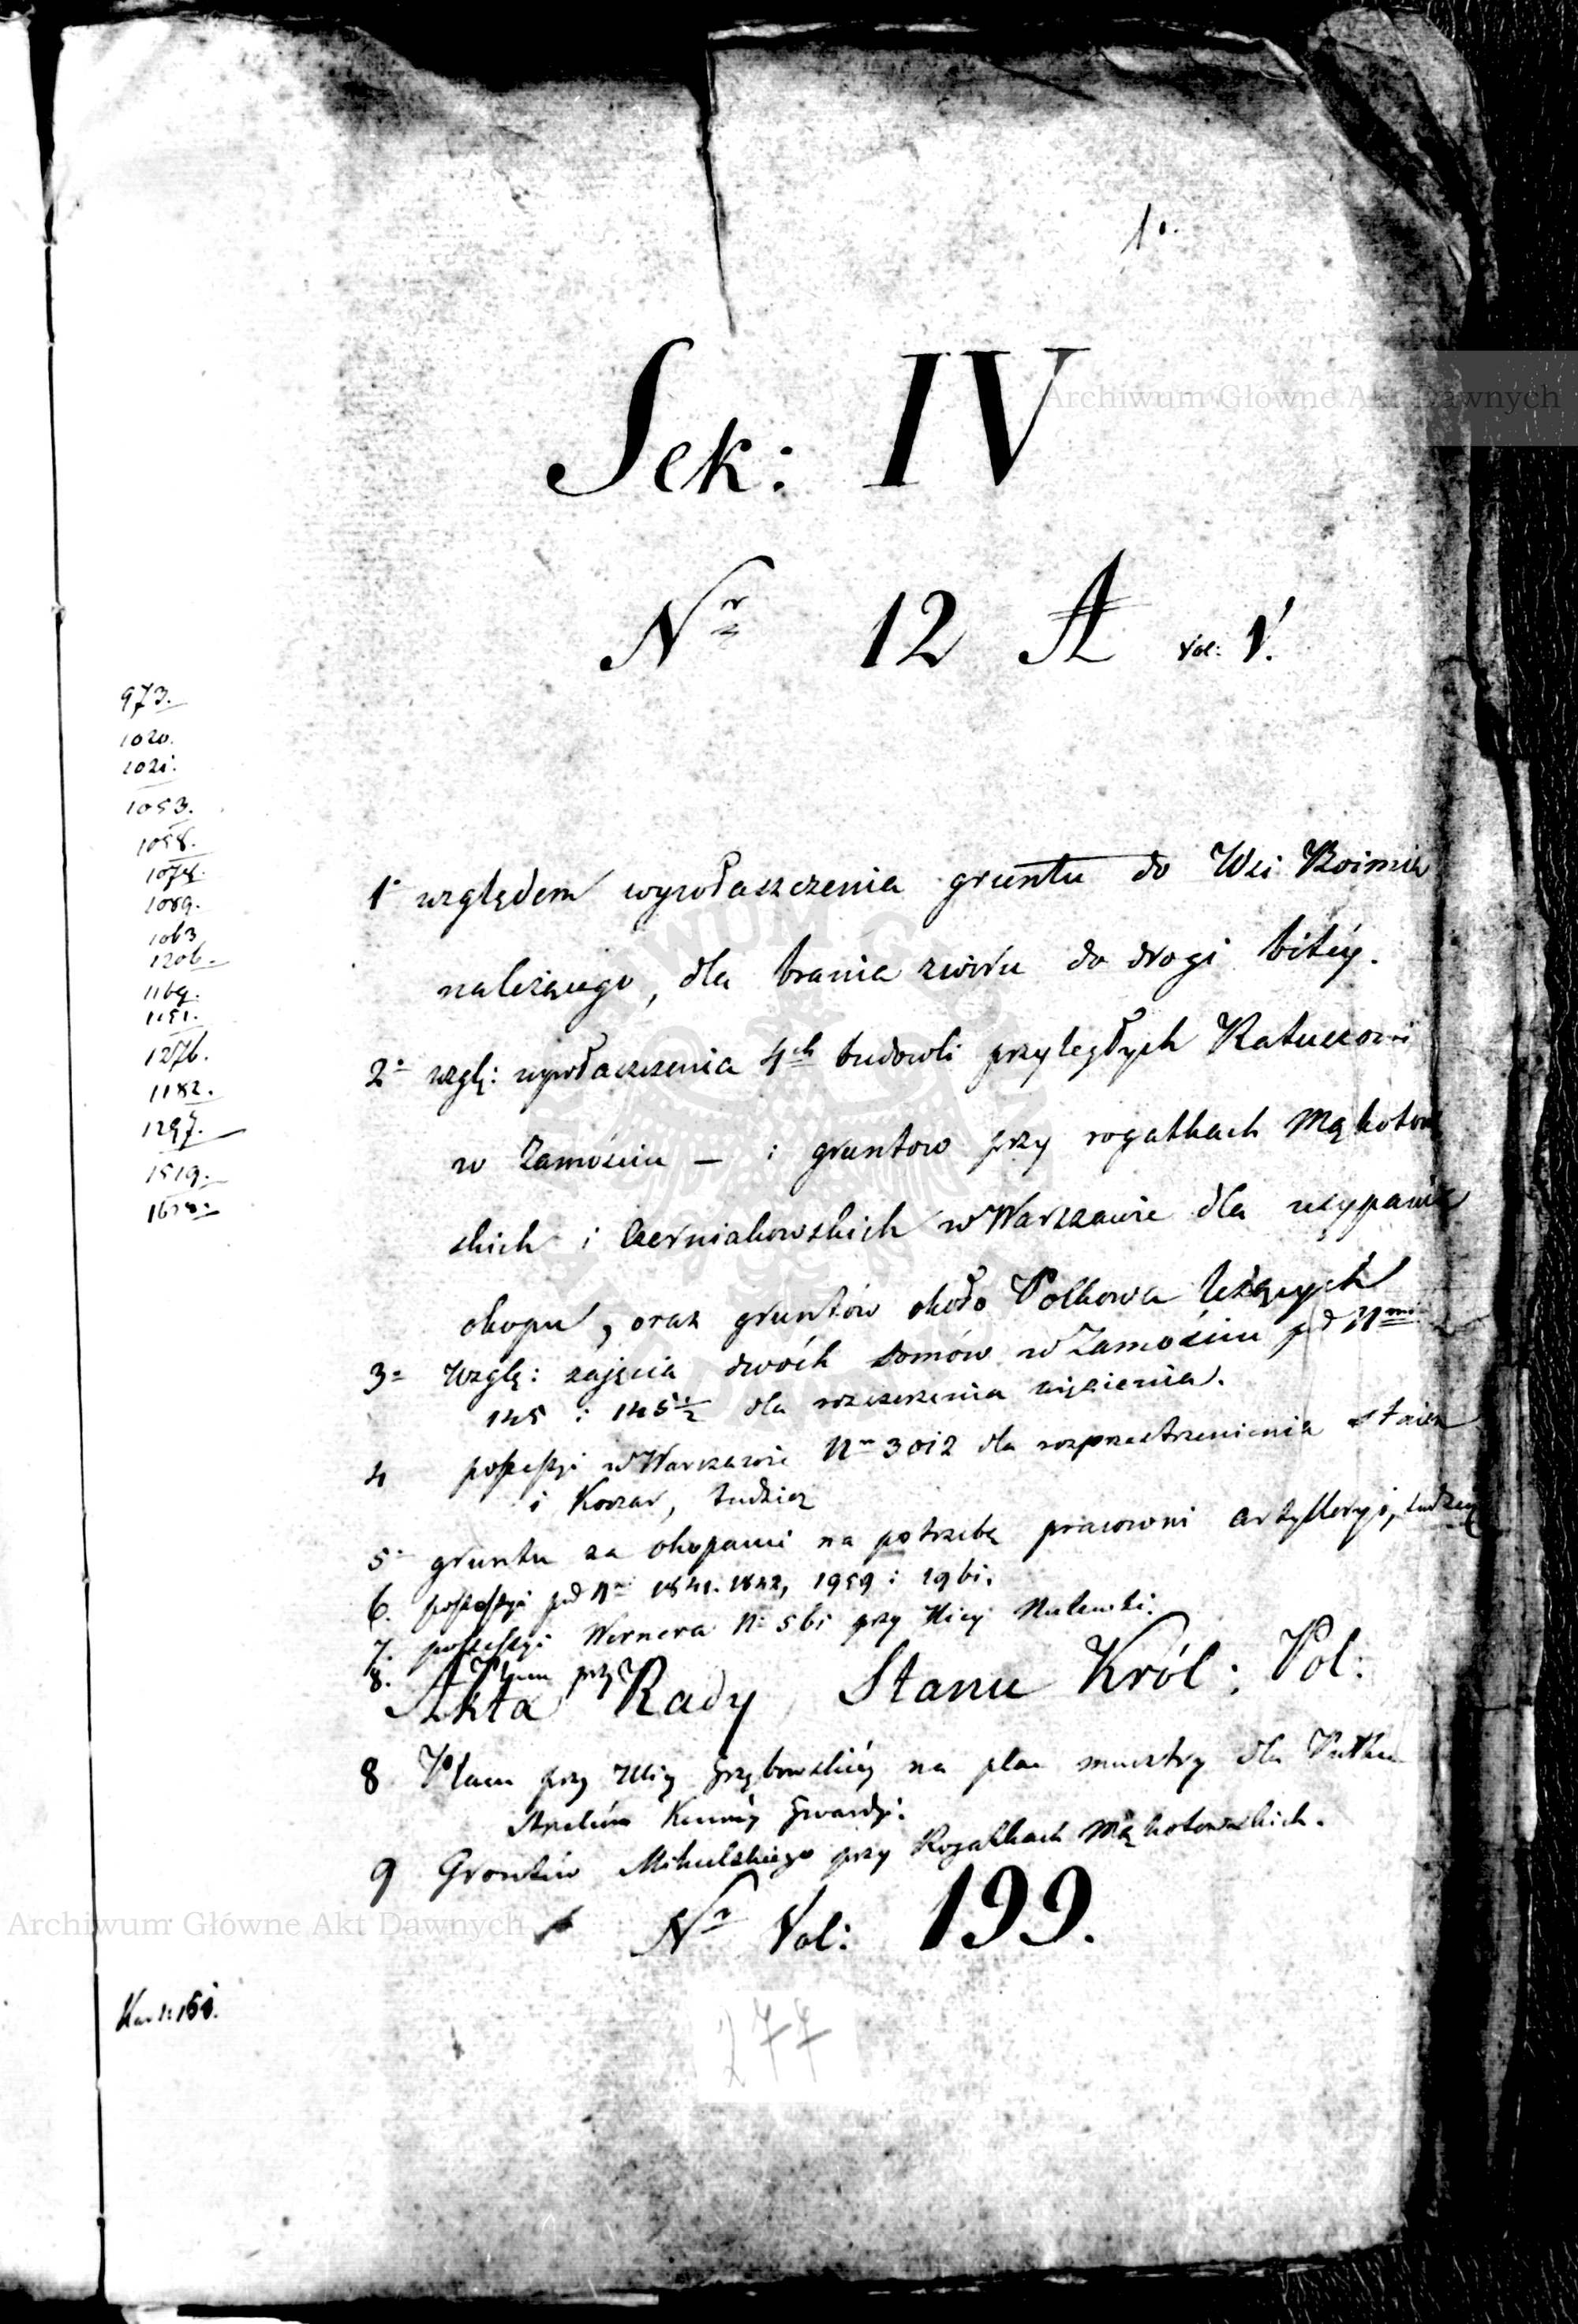 1.
Sek: IV
Nr 12 A Vol: 1.
973.
1020.
1021.
1053.
1058.
1074.
1089.
1063
1206.
1169.
1151.
1276.
1182.
1297.
1519.
1 względem wywłaszczenia gruntu do Wsi
należącego, dla brania żwiru do drogi bitéy.
2 wzglę: wywłaszczenia 4ch budowli przyległych Ratuszowi
w Zamościu – i gruntow przy rogatkach Mąkotow
skich i Czerniakowskich w Warszawie dla usypania
okopu, oraz gruntów około Polkowa leżących
3 Wzglę: zajęcia dwóch domów w Zamościu pod Nmi
145 i 145½ dla rozszerzenia więzienia.
4 possessyi w Warszawie Nr 3012 dla rozprzestrzenienia stajen
i Koszar, tudzież
5 gruntu za okopami na potrzebę pracowni artylleryi, tudzież
6. possessyi pod Nr 1841. 1842, 1959 i 1961.
7. possessyi Wernera N 561 przy Ulicy
8. Placu przy
Akta Rady Stanu Król: Pol:
8 Placu przy Ulicy Grzybowskiéy na plac musztry dla Pułku
Strzelców Konnéy Gwardyi
9 Gruntów Mikulskiego przy Rogatkach Mąkotowskich.
Nr Vol: 199.
277
Archiwum Główne Akt Dawnych
Archiwum Główne Akt Dawnych